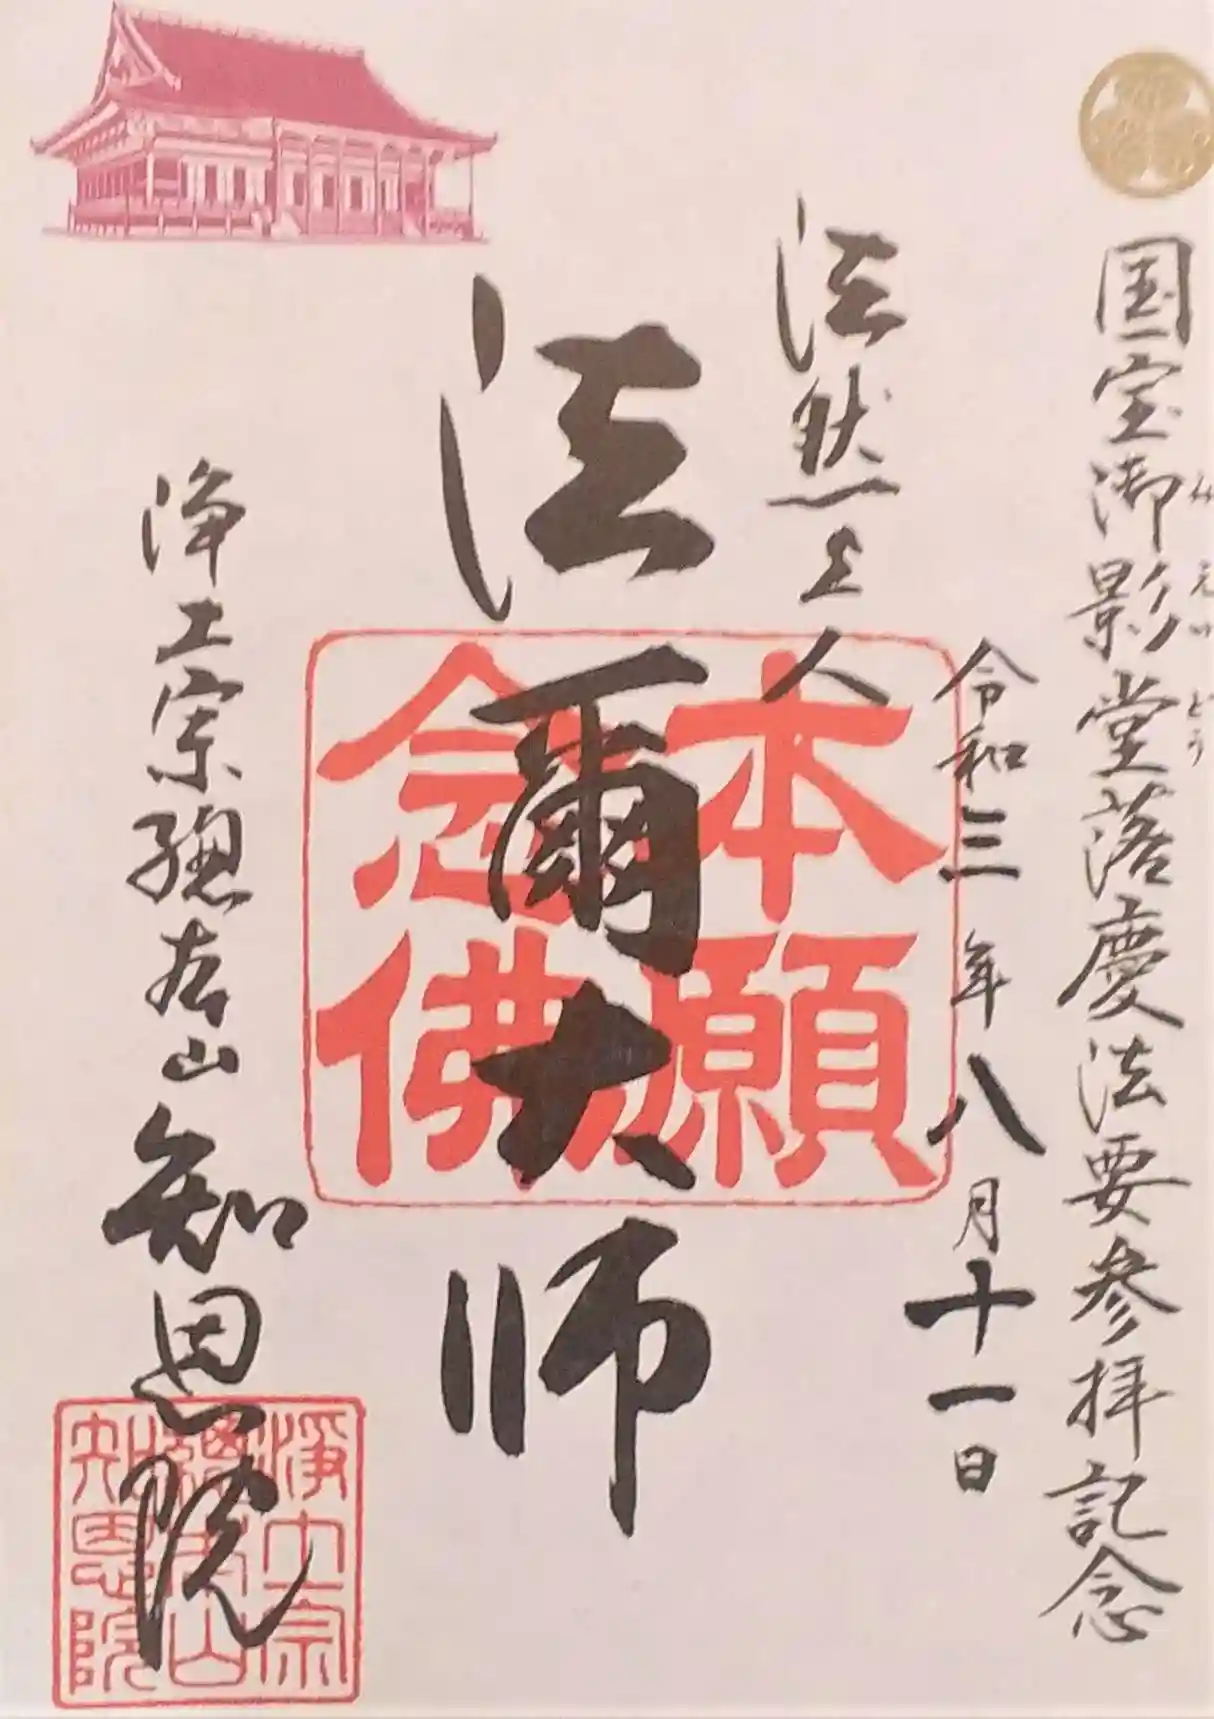 国宝御影堂落慶法要参拝記念
みえいどう
令和三年八月十一日
法然上人
法爾大師
本願
念佛
浄土宗総本山知恩院
浄土宗
総本山
知恩院